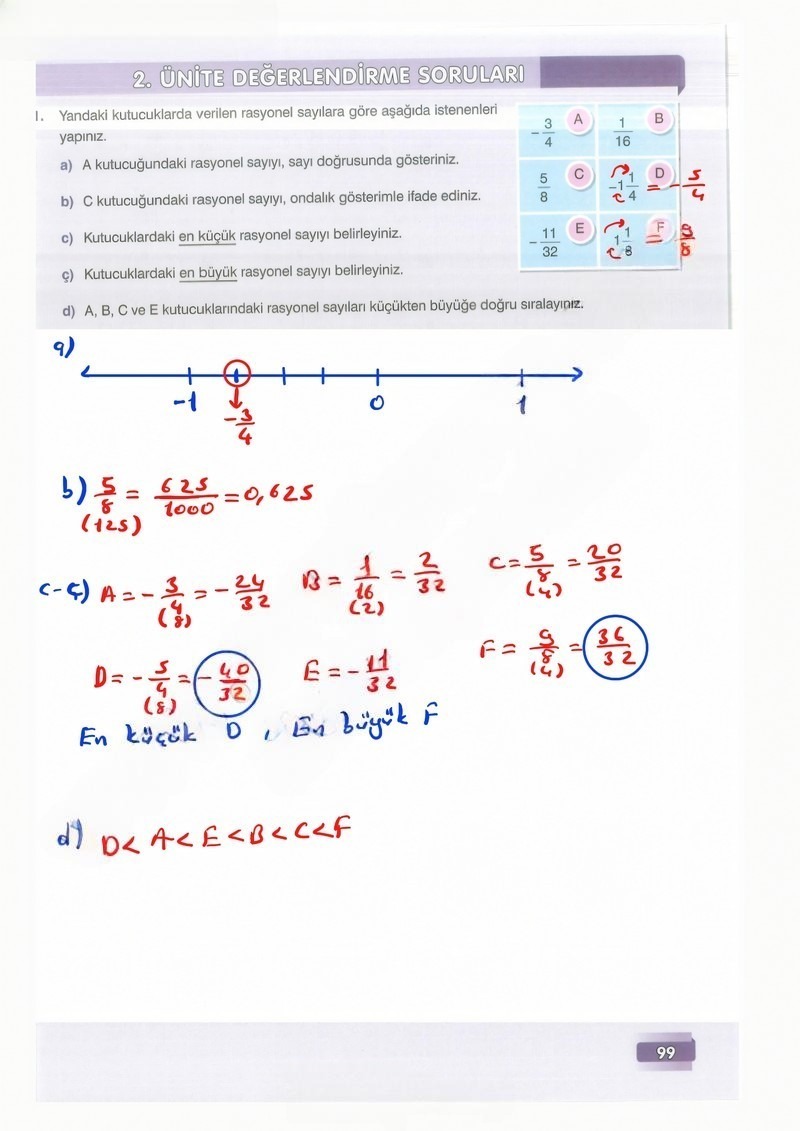 2. ÜNİTE DEĞERLENDİRME SORULARI
1. Yandaki kutucuklarda verilen rasyonel sayılara göre aşağıda istenenleri
yapınız.
a) A kutucuğundaki rasyonel sayıyı, sayı doğrusunda gösteriniz.
b) C kutucuğundaki rasyonel sayıyı, ondalık gösterimle ifade ediniz.
c) Kutucuklardaki en küçük rasyonel sayıyı belirleyiniz.
ç) Kutucuklardaki en büyük rasyonel sayıyı belirleyiniz.
d) A, B, C ve E kutucuklarındaki rasyonel sayıları küçükten büyüğe doğru sıralayınız.
-3/4 A 1/16 B
5/8 C -1 1/4 D = -5/4
-11/32 E 1 1/8 F = 9/8
a)
-1 -3/4 0 1
b) 5/8 = 625/1000 = 0,625
(125)
c-ç) A = -3/4 = -24/32 B = 1/16 = 2/32 C = 5/8 = 20/32
(8) (2) (4)
D = -5/4 = -40/32 E = -11/32 F = 9/8 = 36/32
(8) (4)
En küçük D , En büyük F
d) D < A < E < B < C < F
99